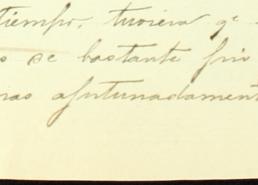 tiempo, tuviera qe
se bastante frio
afortunadament